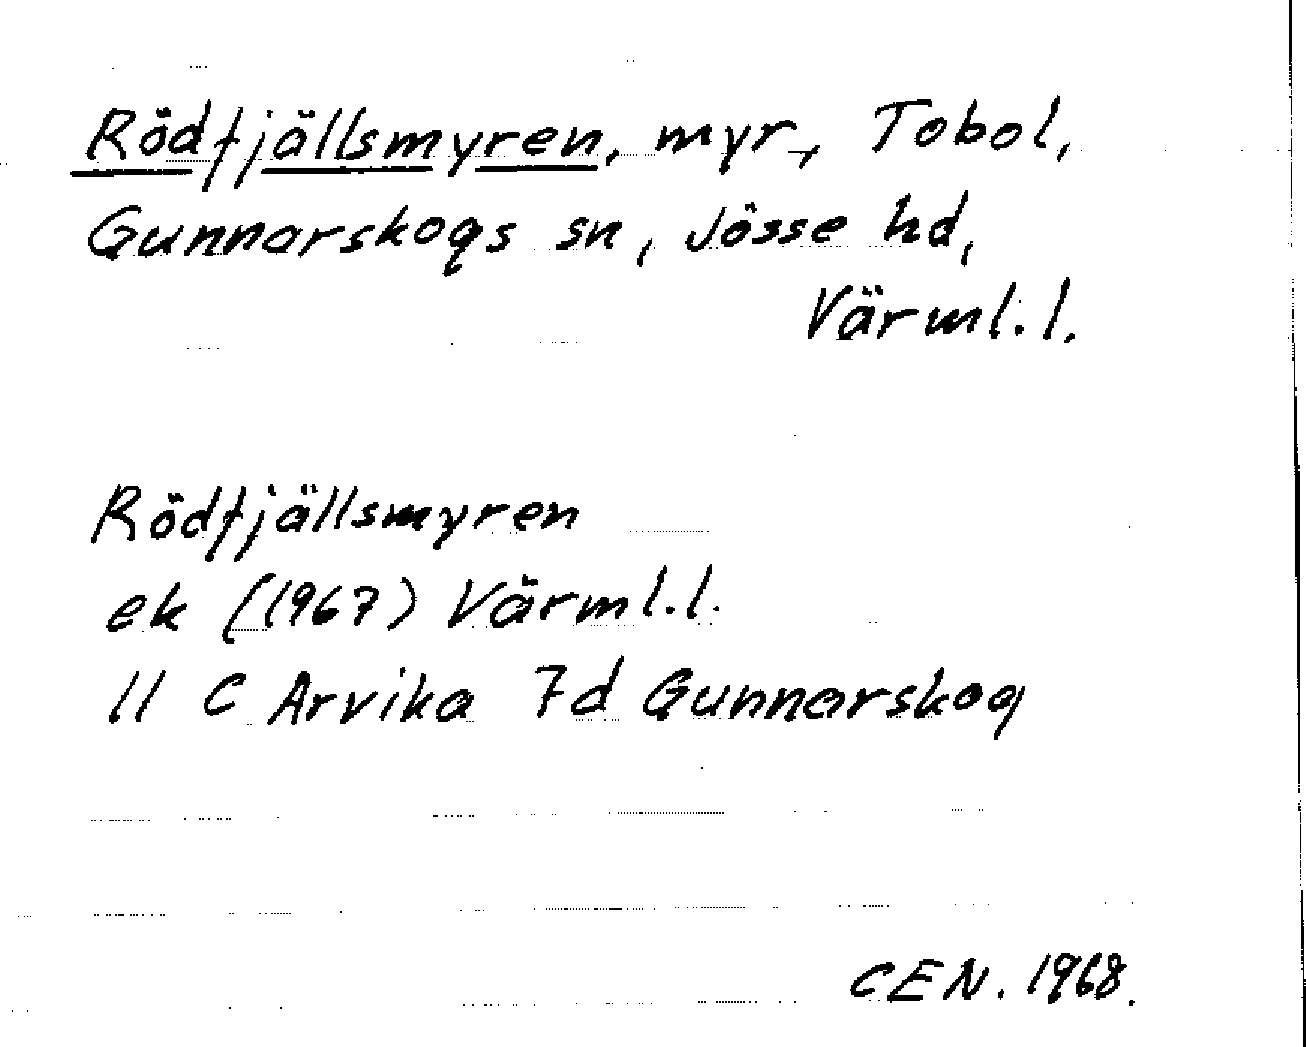 Rödfjällsmyren, myr, Tobol,
Gunnarskogs sn, Jösse hd,
Värml. l.
Rödfjällsmyren
ek (1967) Värml. l.
11 C Arvika 7d Gunnarskog
CEN. 1968.